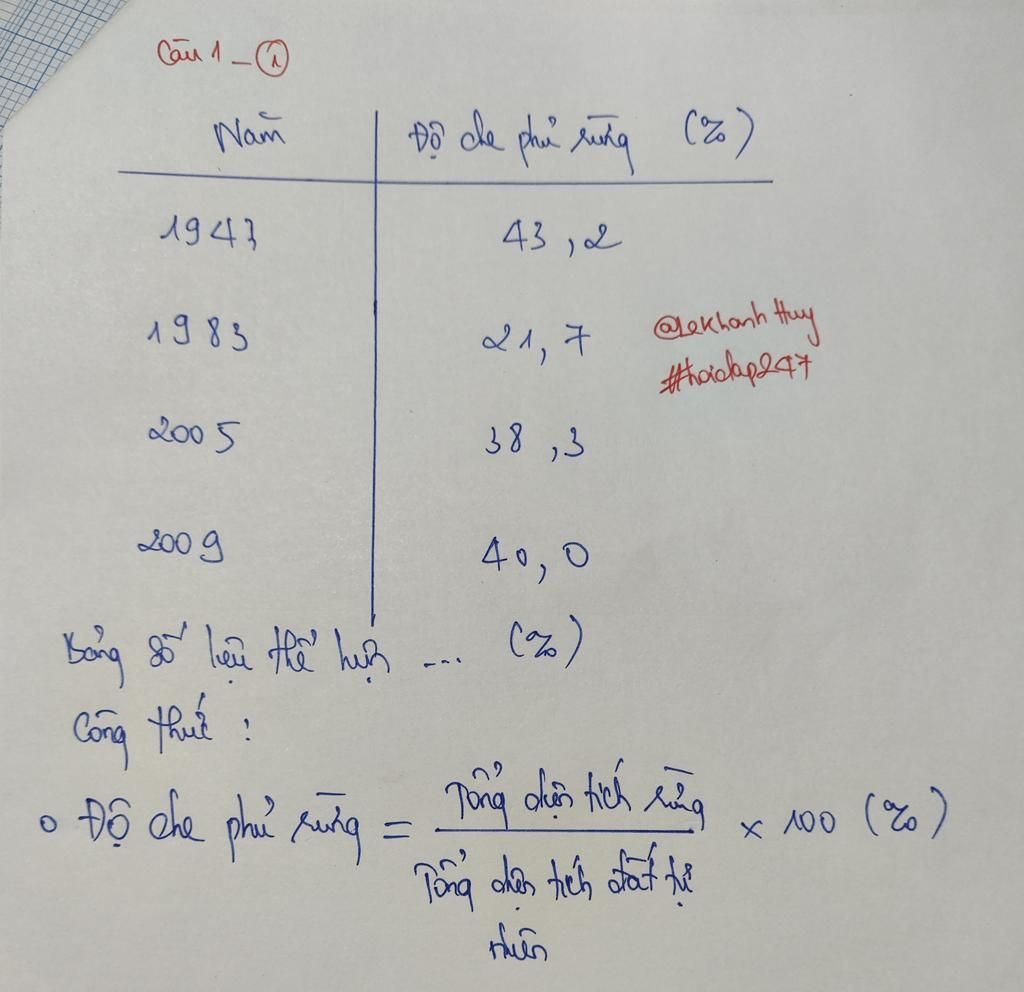 Câu 1 - ①
Năm Độ che phủ rừng (%)
1943 43,2
1983 21,7
@LeKhanhHuy
#hoidap247
2005 38,3
2009 40,0
Bảng số liệu thể hiện ... (%)
Công thức :
Độ che phủ rừng = Tổng diện tích rừng × 100 (%)
Tổng diện tích đất tự
nhiên